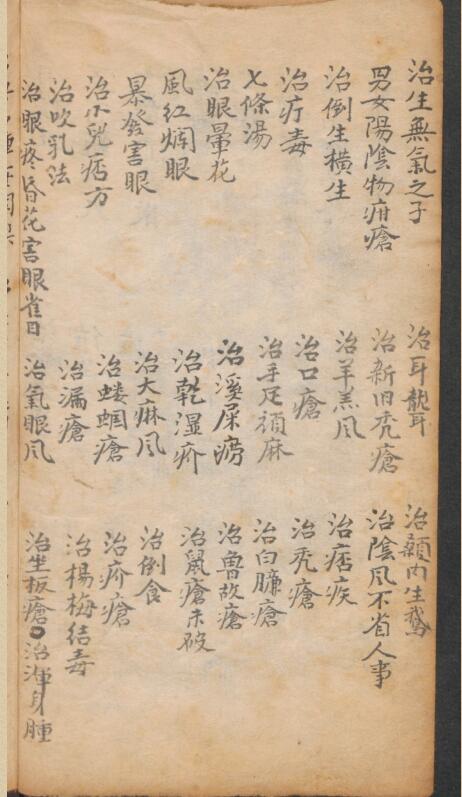 治生無氣之子
男女陽陰物疳瘡
治倒生橫生
治疔毒
七條湯
治眼暈花
風紅爛眼
暴發害眼
治小兒痞方
治吹乳法
治眼疼昏花害眼雀目
治耳聾耳
治新旧禿瘡
治羊羔风
治口瘡
治手足頑麻
治溪屎癆
治乾湿疥
治大麻风
治蝼蝈瘡
治漏瘡
治氣眼风
治顙内生鵝
治陰风不省人事
治痞疾
治禿瘡
治白臁瘡
治魯故瘡
治鼠瘡未破
治倒食
治疥瘡
治楊梅结毒
治坐板瘡 治渾身腫